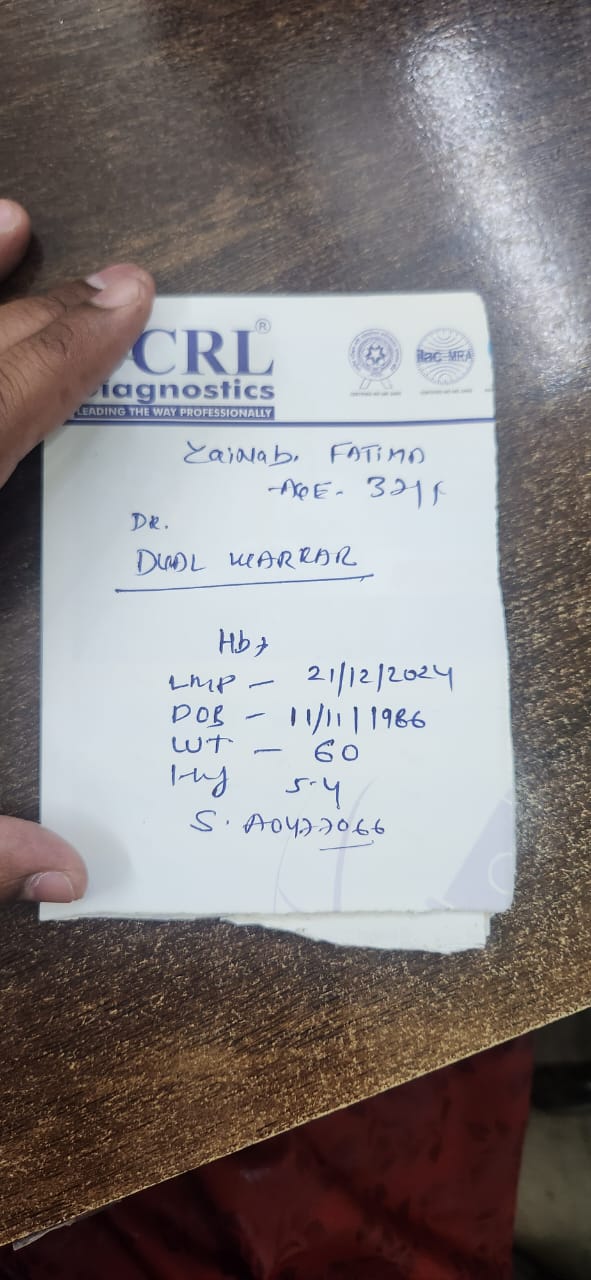 CRL®
iagnostics
LEADING THE WAY PROFESSIONALLY
ilac-MRA
Zainab. FATIMA
AGE - 32 Yr
DR.
DUAL MARKAR
Hb
LMP - 21/12/2024
DOB - 11/11/1986
WT - 60
5.4
S. A0477066